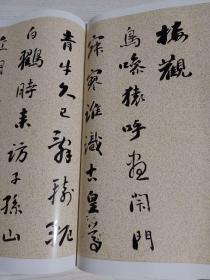 樓觀
鳥噪猿呼晝閉門
寂寥誰識古皇尊
青牛久已辭轅軛
白鶴時來訪子孫山